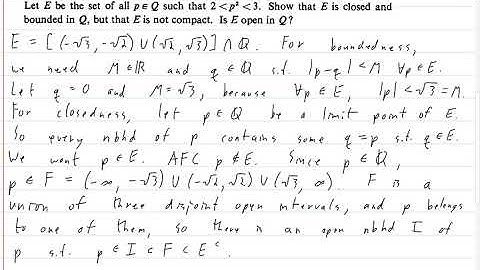 Let E be the set of all p ∈ Q such that 2 < p² < 3. Show that E is closed and
bounded in Q, but that E is not compact. Is E open in Q?
E = [(-√3, -√2) ∪ (√2, √3)] ∩ Q. For boundedness,
we need M∈ℝ and q ∈ Q s.t. |p-q| < M ∀p∈E.
Let q = 0 and M=√3, because ∀p∈E, |p| < √3 = M.
For closedness, let p∈Q be a limit point of E.
So every nbhd of p contains some q≠p s.t. q∈E.
We want p∈E. AFC p∉E. Since p∈Q,
p∈F = (-∞, -√3) ∪ (-√2, √2) ∪ (√3, ∞). F is a
union of three disjoint open intervals, and p belongs
to one of them, so there is an open nbhd I of
p s.t. p∈I⊂F⊂Eᶜ.